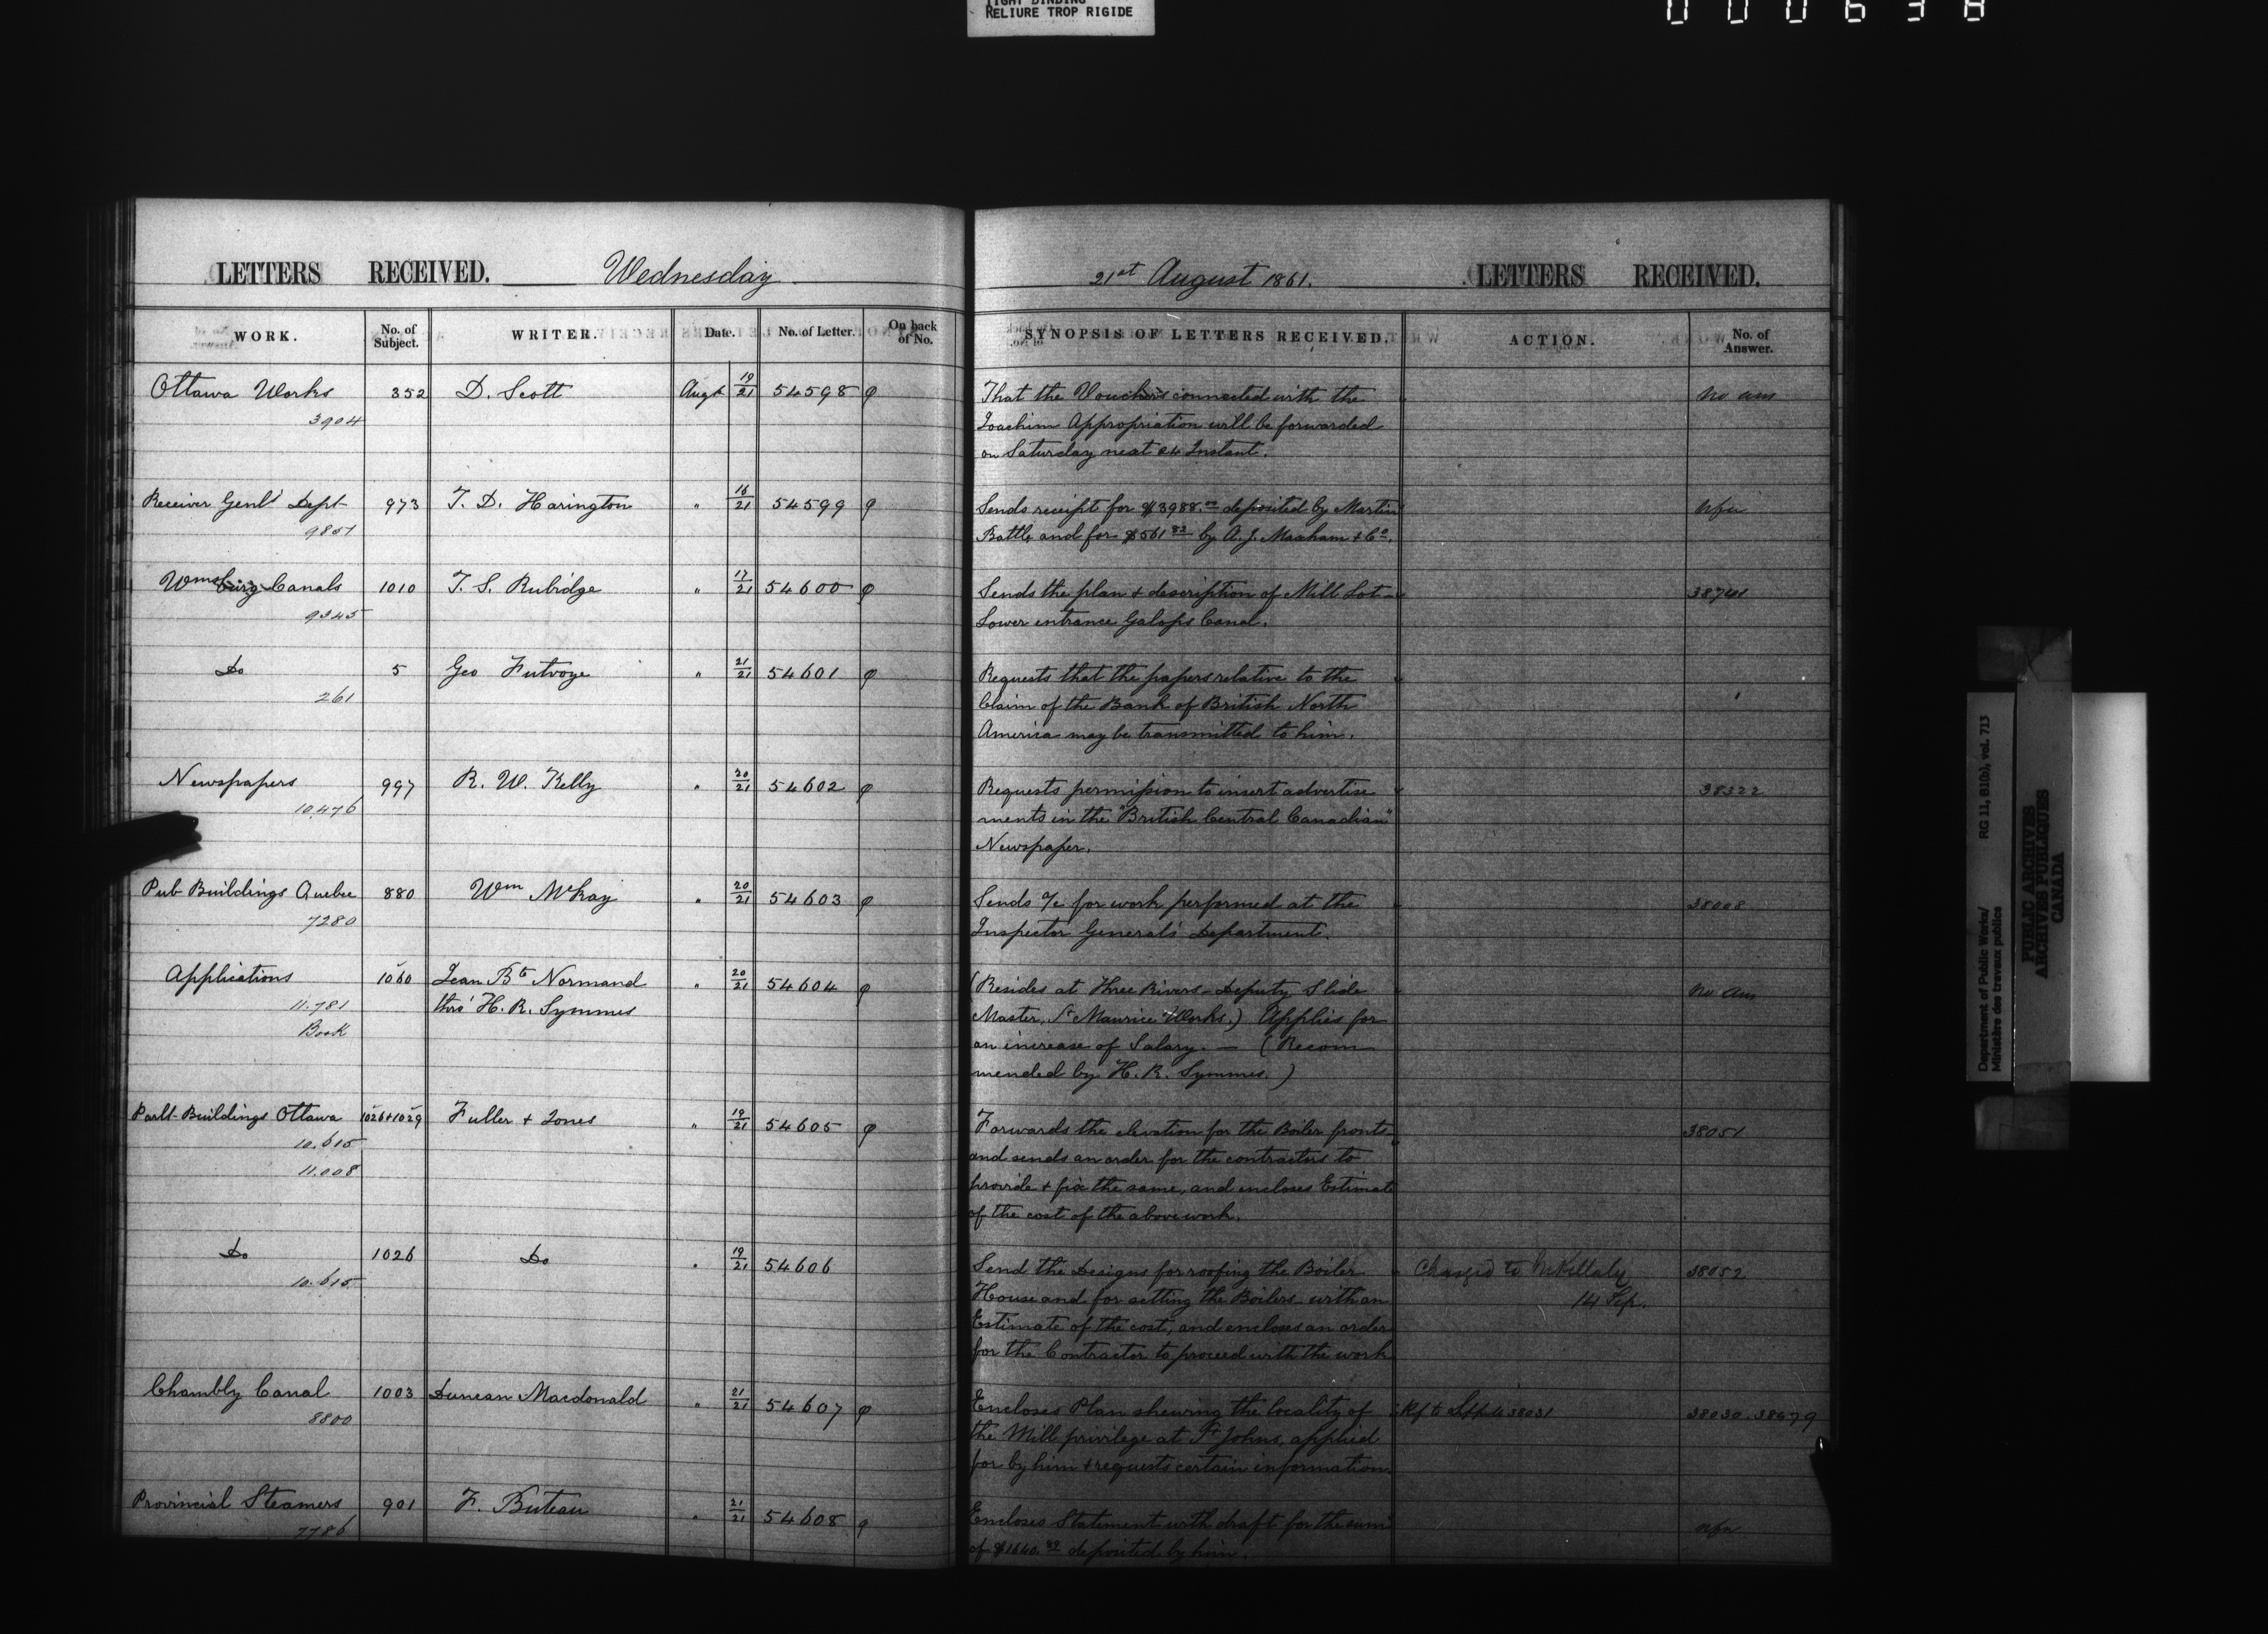 TIGHT BINDING
RELIURE TROP RIGIDE
000638
LETTERS RECEIVED. Wednesday
21st August 1861. LETTERS RECEIVED.
WORK. No. of Subject. WRITER. Date. No. of Letter. On back of No. SYNOPSIS OF LETTERS RECEIVED. ACTION. No. of Answer.
Ottawa Works 352 D. Scott Augt 19/21 54598 φ That the Vouchers connected with the no ans
3904 Joachim Appropriation will be forwarded
on Saturday next 24 Instant.
Receiver Genl's Dept 973 T. D. Harington " 16/21 54599 φ Sends receipt for $3988.00 deposited by Martin
9851 Battle and for $561 82 by A. J. Maxham & Co.
Wmsburg Canals 1010 T. S. Rubidge " 17/21 54600 φ Sends the plan & description of Mill Lot
9345 Lower entrance Galops Canal.
Do 5 Geo Futvoye " 21/21 54601 φ Requests that the papers relative to the
261 Claim of the Bank of British North
America may be transmitted to him.
Newspapers 997 R. W. Kelly " 20/21 54602 φ Requests permission to insert advertise 38322
10,476 ments in the "British Central Canadian"
Newspaper.
Pub Buildings Quebec 880 Wm McKay " 20/21 54603 φ Sends a/c for work performed at the 38008
7280 Inspector General's Department.
Applications 1060 Jean Bte Normand " 20/21 54604 φ (Resides at Three Rivers - Deputy Slide no ans
11.781 thro' H. R. Symmes Master, St Maurice Works.) Applies for
Book an increase of Salary. — (Recom
mended by H. R. Symmes.)
Parlt Buildings Ottawa 1026+1029 Fuller + Jones " 19/21 54605 φ Forwards the elevation for the Boiler fronts 38051
10.615 and sends an order for the contractors to
11.008 provide + fix the same, and encloses Estimate
of the cost of the above work.
Do 1026 Do " 19/21 54606 Send the Designs for roofing the Boiler Charged to Mr Killaly 38052
10.615 House and for setting the Boilers with an 14 Sep.
Estimate of the cost, and encloses an order
for the Contractor to proceed with the work
Chambly Canal 1003 Duncan Macdonald " 21/21 54607 φ Encloses Plan shewing the locality of 38030.
8800 the Mill privilege at St Johns, applied
for by him & requests certain information.
Provincial Steamers 901 F. Buteau " 21/21 54608 φ Encloses Statement with draft for the sum
7786 of $1640.82 deposited by him.
Department of Public Works/ RG 11, B1(b), vol. 713
Ministère des travaux publics
PUBLIC ARCHIVES
ARCHIVES PUBLIQUES
CANADA